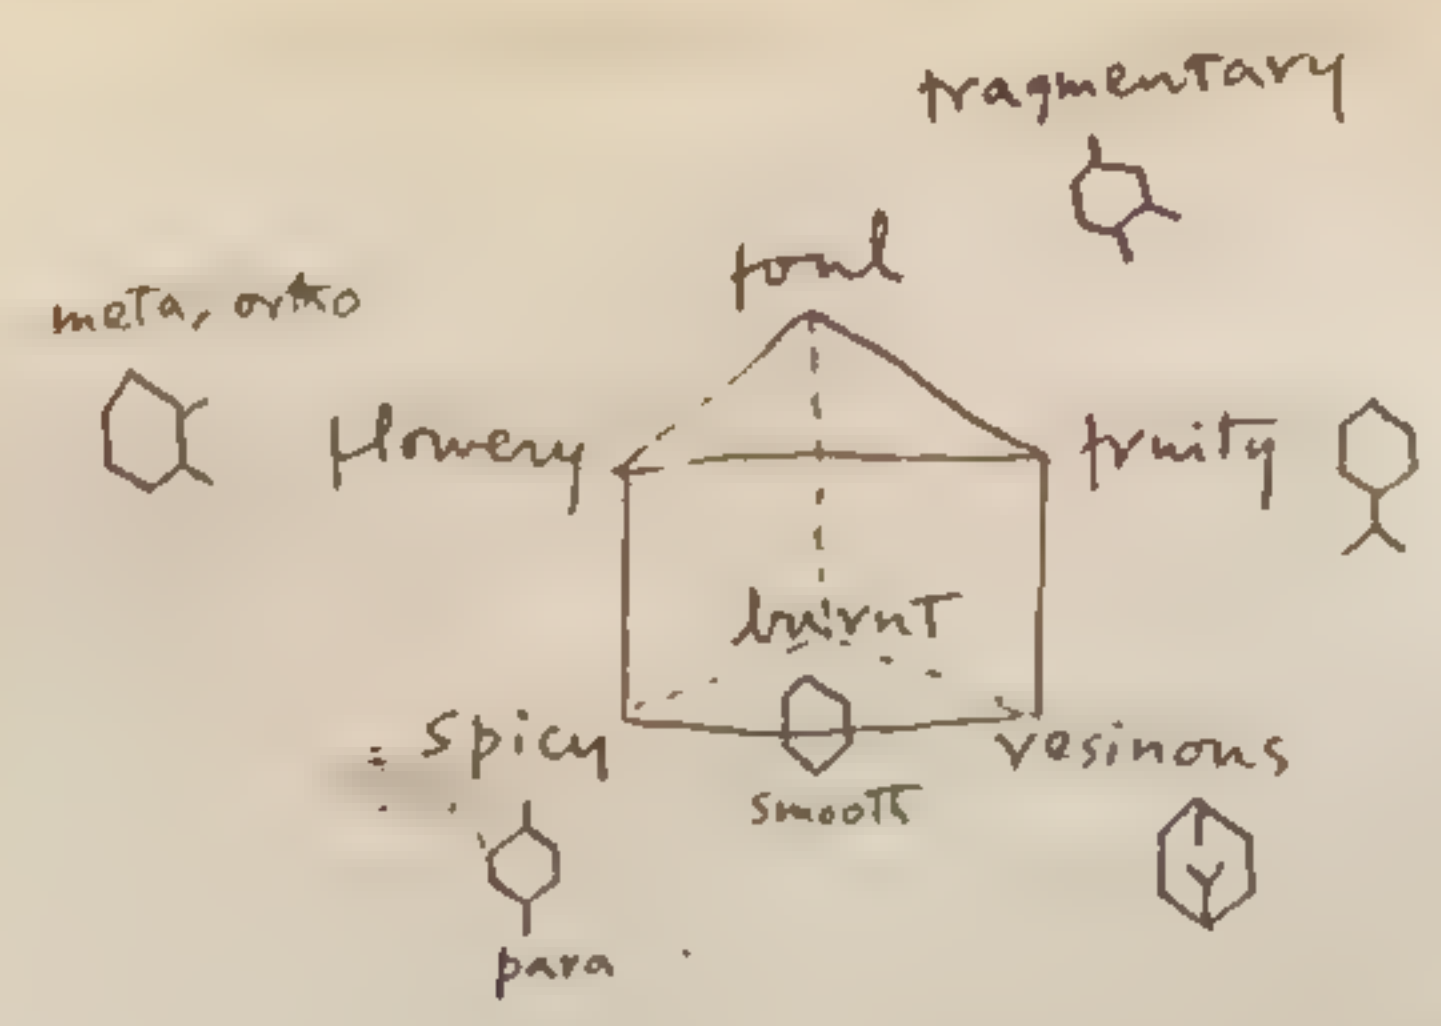 fragmentary
foul
meta, ortho
flowery
fruity
burnt
spicy
resinous
smooth
para